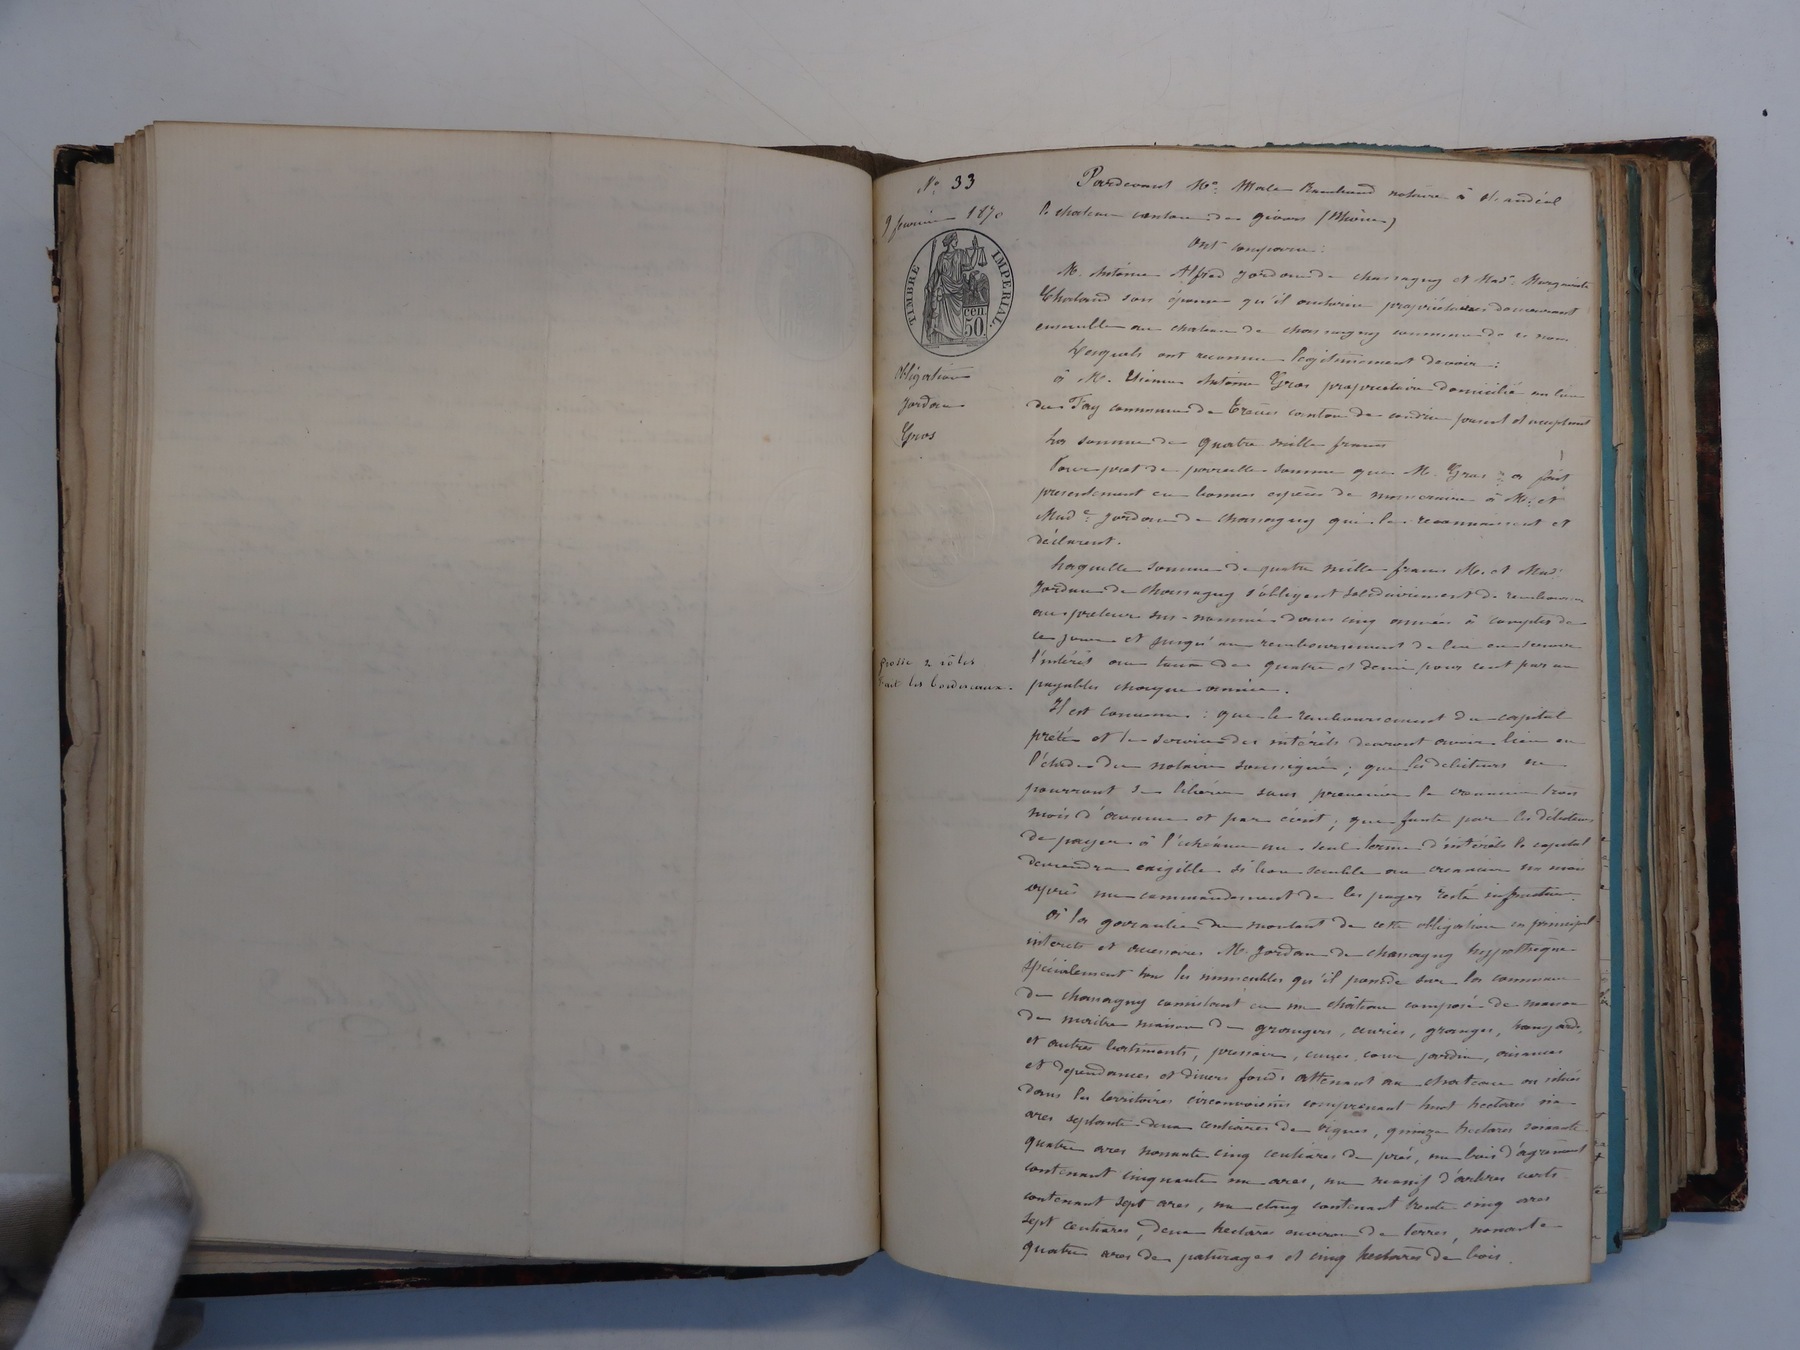 N° 33
9 février 1870
TIMBRE IMPERIAL.
cen. 50.
Obligation
Jordan
Gras
grosse 2 rôles
les bordereaux.
Pardevant Me notaire à St andéol
le chateau canton de givors (Rhône)
Ont comparu :
M. Antoine Alfred Jordan de chassagny et Made Marguerite
son épouse qu'il autorise propriétaires demeurant
ensemble au chateau de chassagny commune de ce nom
Lesquels ont reconnu légitimement devoir :
à M. Etienne Antoine Gras propriétaire domicilié au lieu
du Fay commune de Trèves canton de condrieu présent et acceptant
La somme de quatre mille francs
Pour pret de pareille somme que M. Gras a fait
presentement en bonnes espèces de numéraire à M. et
Made Jordan de Chassagny qui le reconnaissent et
déclarent.
Laquelle somme de quatre mille francs M. et Made
Jordan de Chassagny s'obligent solidairement de rembourser
au preteur sus-nommé dans cinq années à compter de
ce jour et jusqu'au remboursement de lui en servir
l'intérêt au taux de quatre et demi pour cent par an
payables chaque année.
Il est convenu : que le remboursement du capital
prêté et le service des intérêts devront avoir lieu en
l'étude du notaire soussigné ; que les débiteurs ne
pourront se libérer sans prevenir le creancier trois
mois d'avance et par écrit ; que faute par les débiteurs
de payer à l'échéance un seul terme d'intérêts le capital
deviendra exigible si bon semble au creancier un mois
après un commandement de les payer resté infructueux.
à la garantie du montant de cette obligation en principal
interets et accessoires M. Jordan de chassagny hypothèque
spécialement tous les immeubles qu'il possède sur la commune
de chassagny consistant en un château composé de maison
de maitre maison de grangers, écuries, granges, hangards,
et autres batiments, pressoir, cuves, cour jardin, aisances
et dependances et divers fonds attenant au chateau ou situés
dans les territoires circonvoisins comprenant huit hectares six
ares septante deux centiares de vignes, quinze hectares soixante
quatre ares nonante cinq centiares de prés, un bois d'agrément
contenant cinquante un ares, un massif d'arbres verts
contenant sept ares, un etang contenant trente cinq ares
sept centiares, deux hectares environ de terres, nonante
quatre ares de paturages et cinq hectares de bois.